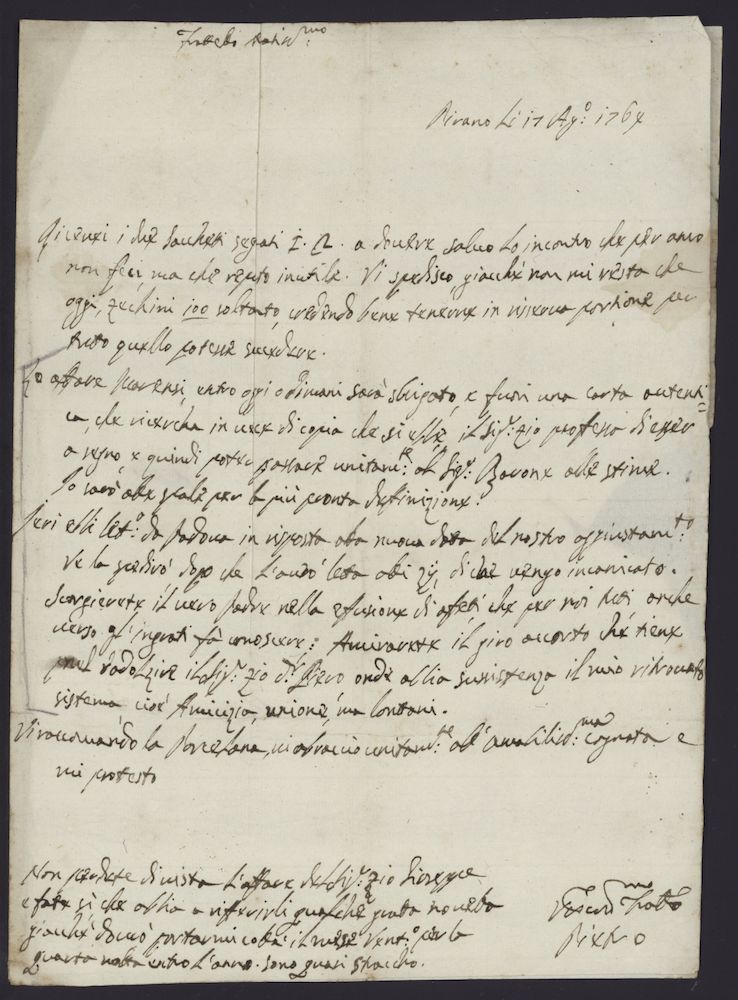 Fratello
Pirano Li 17 Ag.o 1764
i due Sacchetti segnati a dovere salvo Lo incontro che per anco
non feci, ma che reputo inutile. Vi spedisco, giacchè non mi resta che
oggi, zechini 100 soltanto, credendo bene tenerne in riserva portione per
tuto quello potesse succedere.
Lo affare entro oggi o dimani sarà sbrigato, e fuori una carta autenti=
ca, che ricercha in vece di copia che si ebbe, il Sig.r zio professa di esser
a segno, e quindi potrò passare unitam.te al Sig.r Barone alle stime.
Io sarò alle per la più pronta definizione.
Jeri ebbi let.a da Padova in risposta alla nuova data del nostro aggiustam.to:
Ve la spedirò dopo che L'avrò leta alli zij, di che vengo incaricato.
Scorgierete il vero Padre nella efusione di afeti che per noi tuti, anche
verso gl'ingrati fà conoscere: Amirarete il giro accorto che tiene
per radolzire il Sig.r zio onde abbia sussistenza il mio ritrovato
sistema cioè Amicizia, unione, ma lontani.
Vi raccomando la Porcelana, vi abraccio unitam.te all' Cognata e
mi protesto
Non perdete di vista L'affare del Sig.r zio Giuseppe
e fate si che abbia a riferirli qualche grata novella
giacchè dovrò portarmi colà il mese per la
quarta volta entro L'anno. Sono quasi
Fratello
Pietro